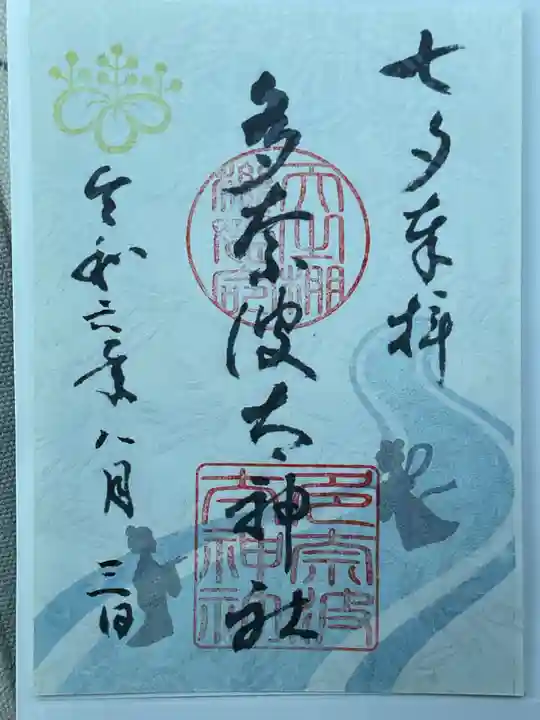 七夕奉拝
多奈波太神社
令和六年八月三日
多奈波
太神社